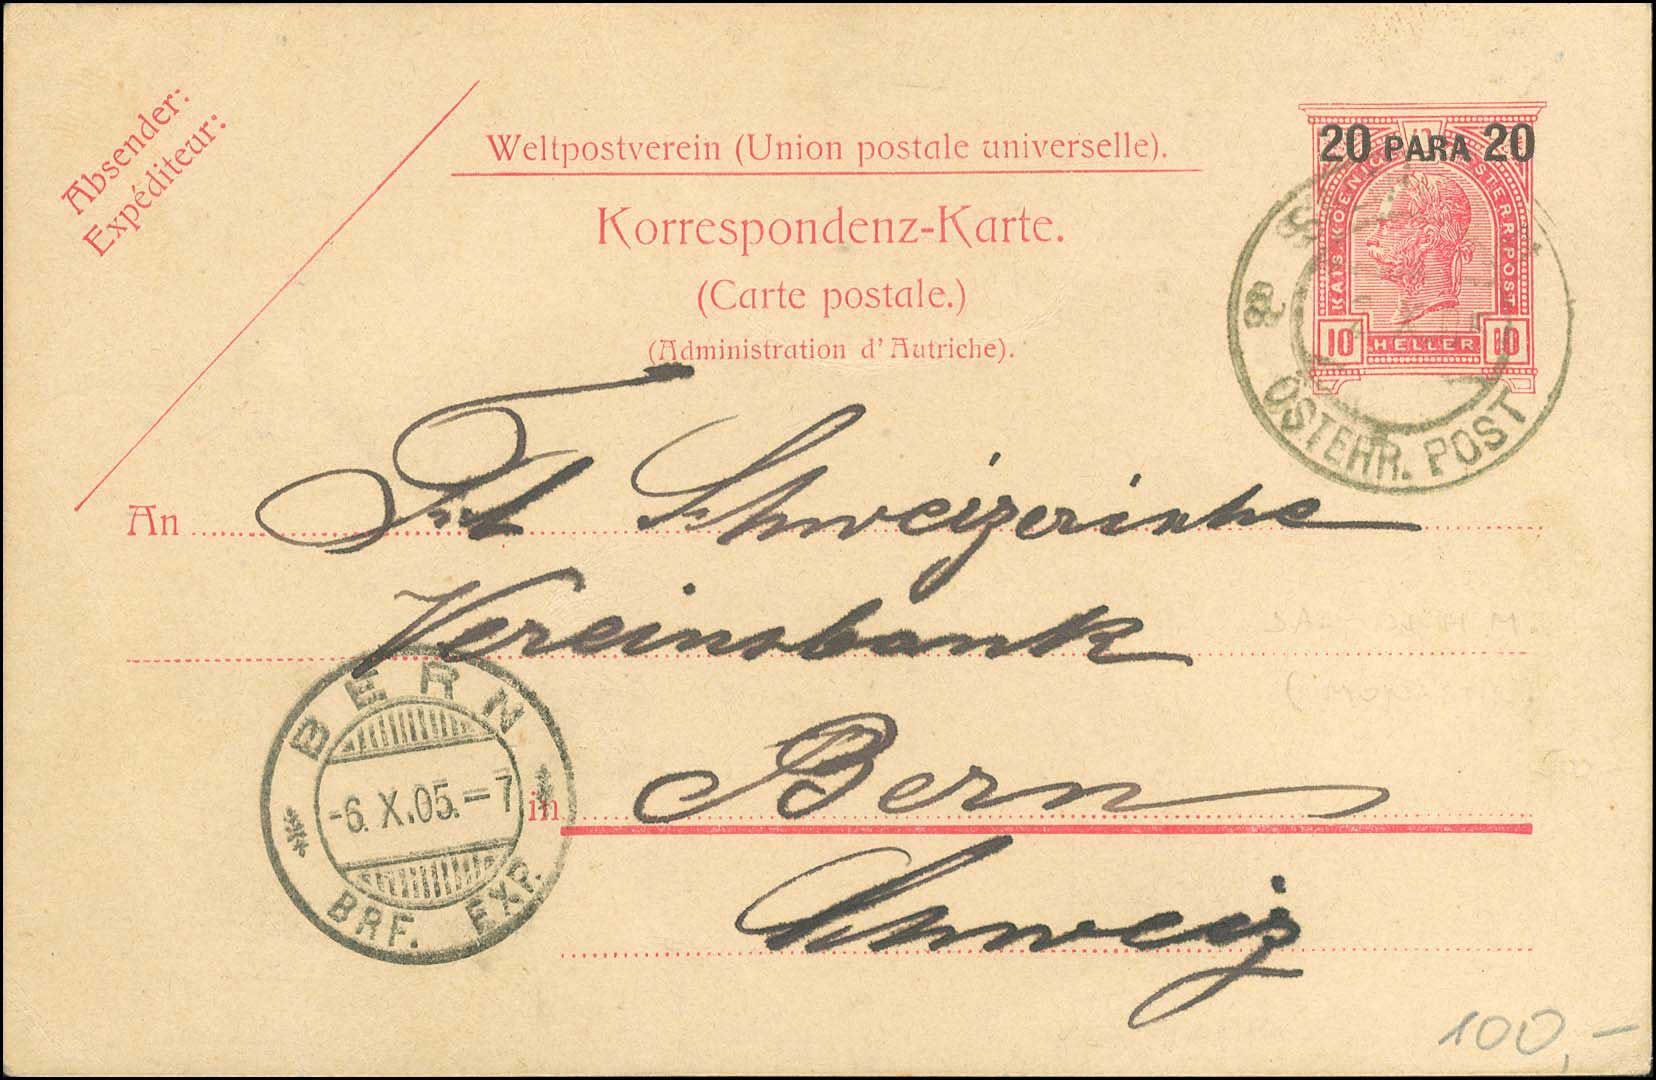 Absender:
Expéditeur:
Weltpostverein (Union postale universelle).
Korrespondenz-Karte.
(Carte postale.)
(Administration d'Autriche).
20 PARA 20
KAIS. KOENIGL. OESTERR. POST
10 HELLER 10
ÖSTERR. POST
An Schweizerische
Vereinsbank
in Bern
Schweiz
BERN
-6. X. 05. - 7
BRF. EXP.
100,-